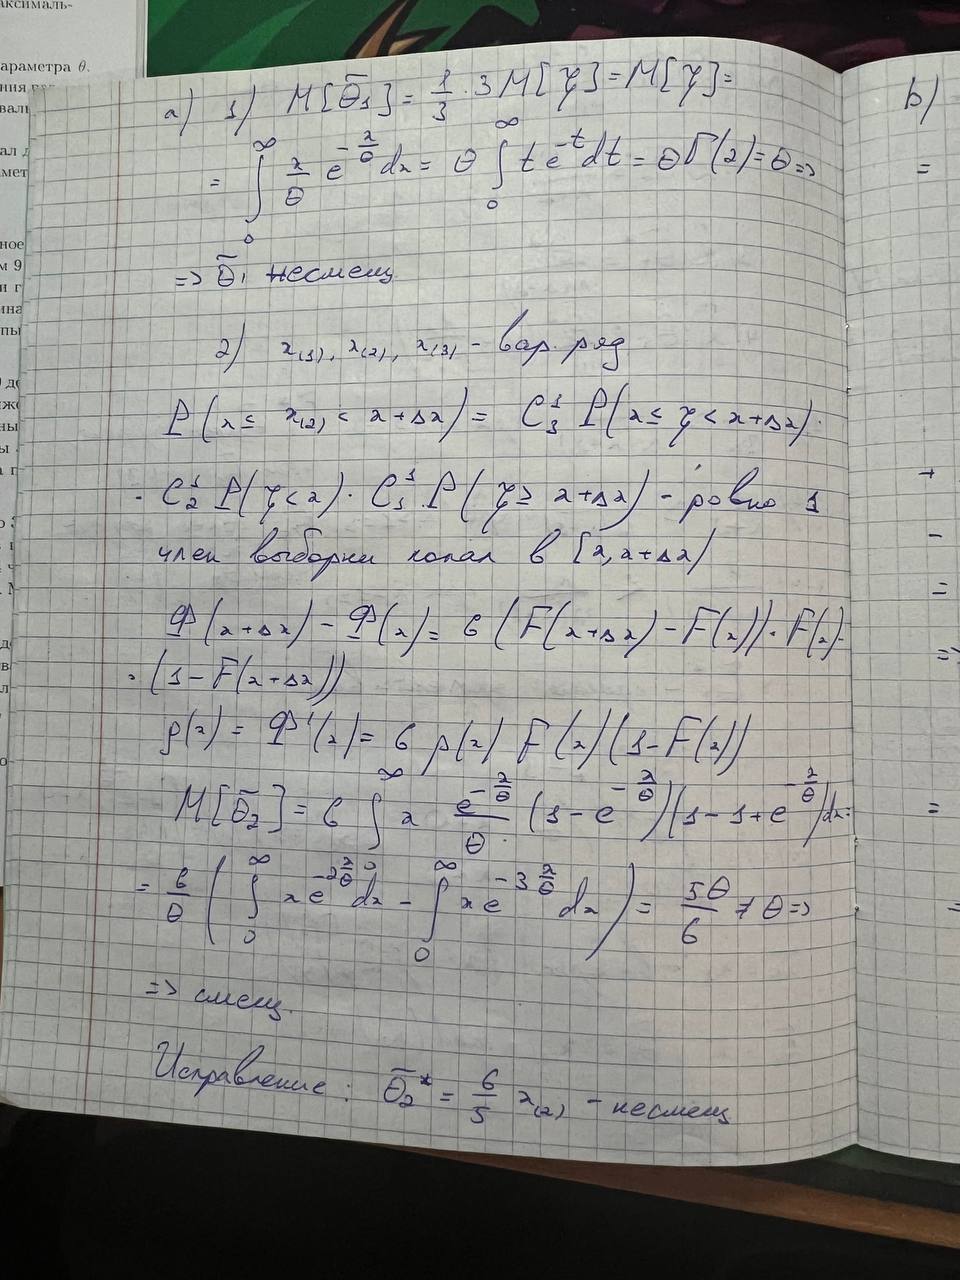 аксималь-
араметра θ.
а) 1) M[θ̃₁] = 1/3 · 3M[ξ] = M[ξ] =
= ∫₀^∞ x/θ e^(-x/θ) dx = θ ∫₀^∞ t e^(-t) dt = θГ(2) = θ =>
=> θ̃₁ несмещ
2) x₍₁₎, x₍₂₎, x₍₃₎ - вар. ряд
P(x ≤ x₍₂₎ < x+Δx) = C₃¹ P(x ≤ ξ < x+Δx) ·
· C₂¹ P(ξ < x) · C₁¹ P(ξ ≥ x+Δx) - ровно 1
член выборки попал в [x, x+Δx)
Ф(x+Δx) - Ф(x) = 6 (F(x+Δx) - F(x)) · F(x) ·
· (1 - F(x+Δx))
ρ(x) = Ф'(x) = 6 p(x) F(x)(1-F(x))
M[θ̃₂] = 6 ∫₀^∞ x e^(-x/θ)/θ · (1 - e^(-x/θ))(1-1+e^(-x/θ))dx =
= 6/θ (∫₀^∞ x e^(-2x/θ) dx - ∫₀^∞ x e^(-3x/θ) dx) = 5θ/6 ≠ θ =>
=> смещ.
Исправление: θ̃₂* = 6/5 x₍₂₎ - несмещ
b)
=
+
-
=
=>
=
=